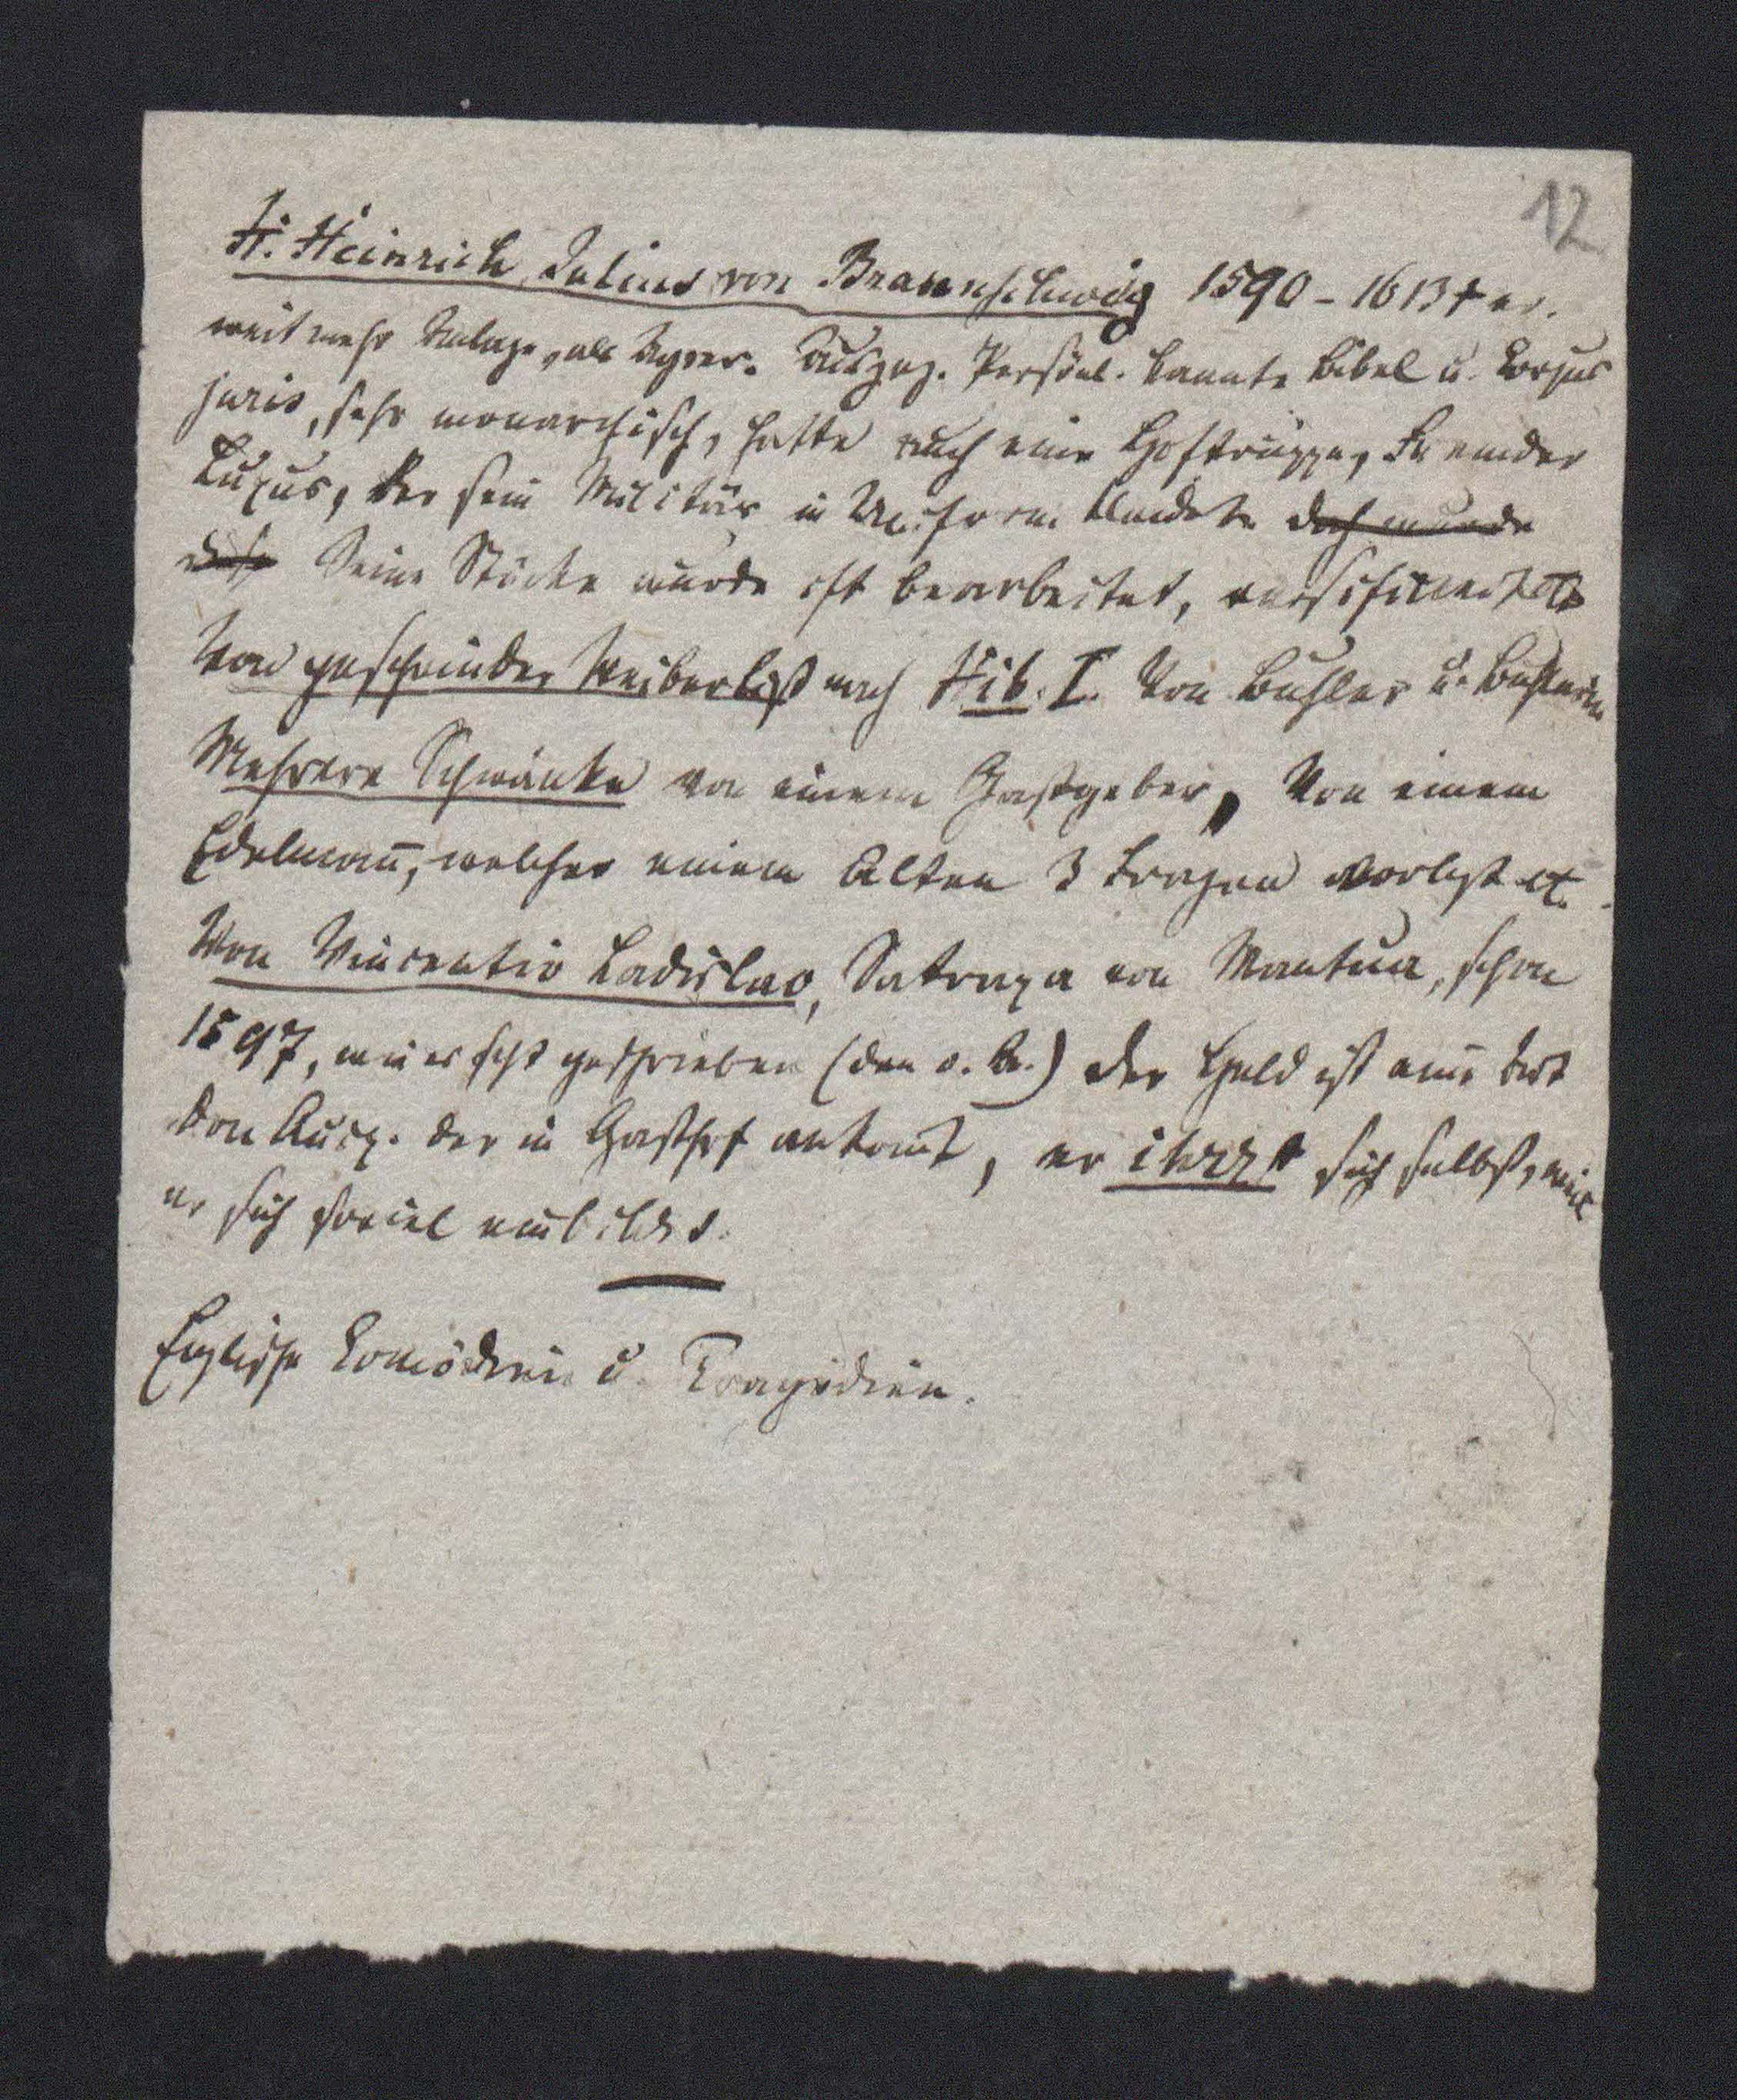 12
H. Heinrich Julius von Braunschweig 1590 - 1613 † er.
weit mehr Anlage, als Ayrer. Ausgez. Persönl. kannte Bibel u. Corpus
juris, sehr monarchisch, hatte auch eine Hoftruppe, Freund der
Luxus, der sein Militär in Uniform kleidete doch wurde
diese Seine Stücke wurde oft bearbeitet, versificirt
Von geschwinder Weiberlist nach Hib. I. Von Buhler u. Buhlerin
Mehrere Schwänke von einem Gastgeber, Von einem
Edelmann, welcher einem Alten 3 Fragen vorlegt etc.
Von Vincentio Ladislao, Satrapa von Mantua, schon
1597, wie es scheint geschrieben (den o. B.) der Held ist eine Art
Don Quix. der in Gasthof ankomt, er ihrzt sich selbst, weil
er sich soviel einbildet.
Englische Comödien u. Tragödien.